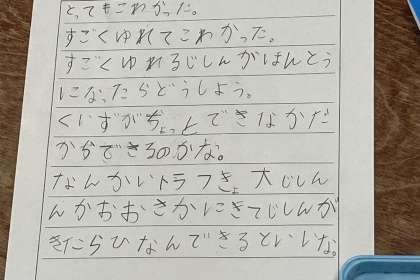 とってもこわかった。
すごくゆれてこわかった。
すごくゆれるじしんがほんとう
になったらどうしよう。
くいずがちょっとできなかだ
からできるのかな。
なんかいトラフきょ大じしん
んかおおさかにきてじしんが
きたらひなんできるといいな。